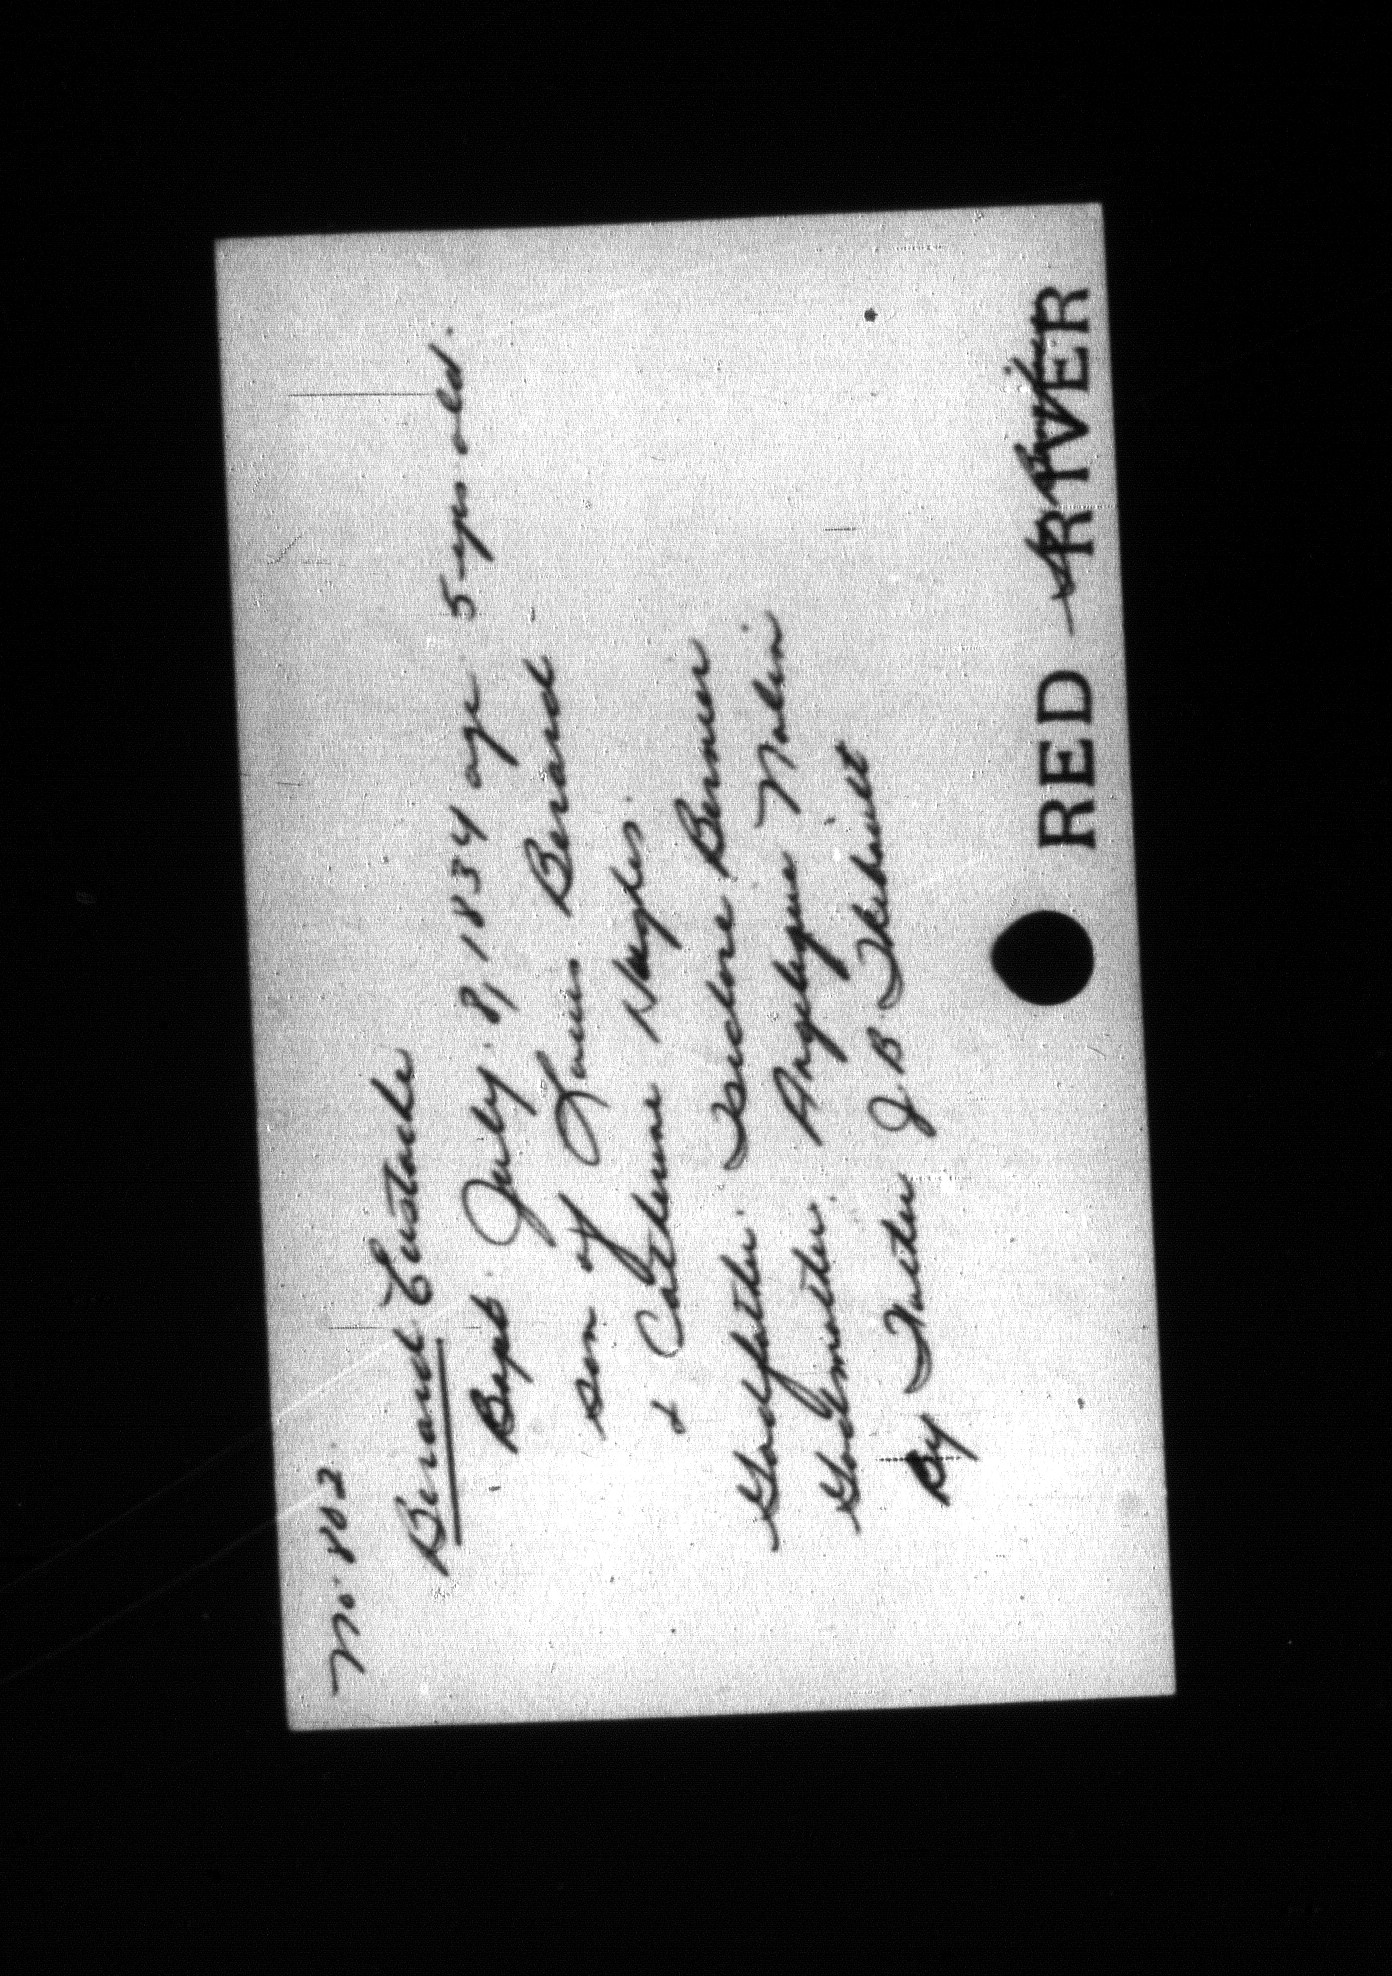 No. 802.
Berard Eustache
Bapt. July 8, 1834 age 5 yrs old.
son of Louis Berard
& Catherine Hughes.
Godfather. Isidore Bernier
Godmother. Angelique Nolin
By Father J. B. Thibault
RED RIVER